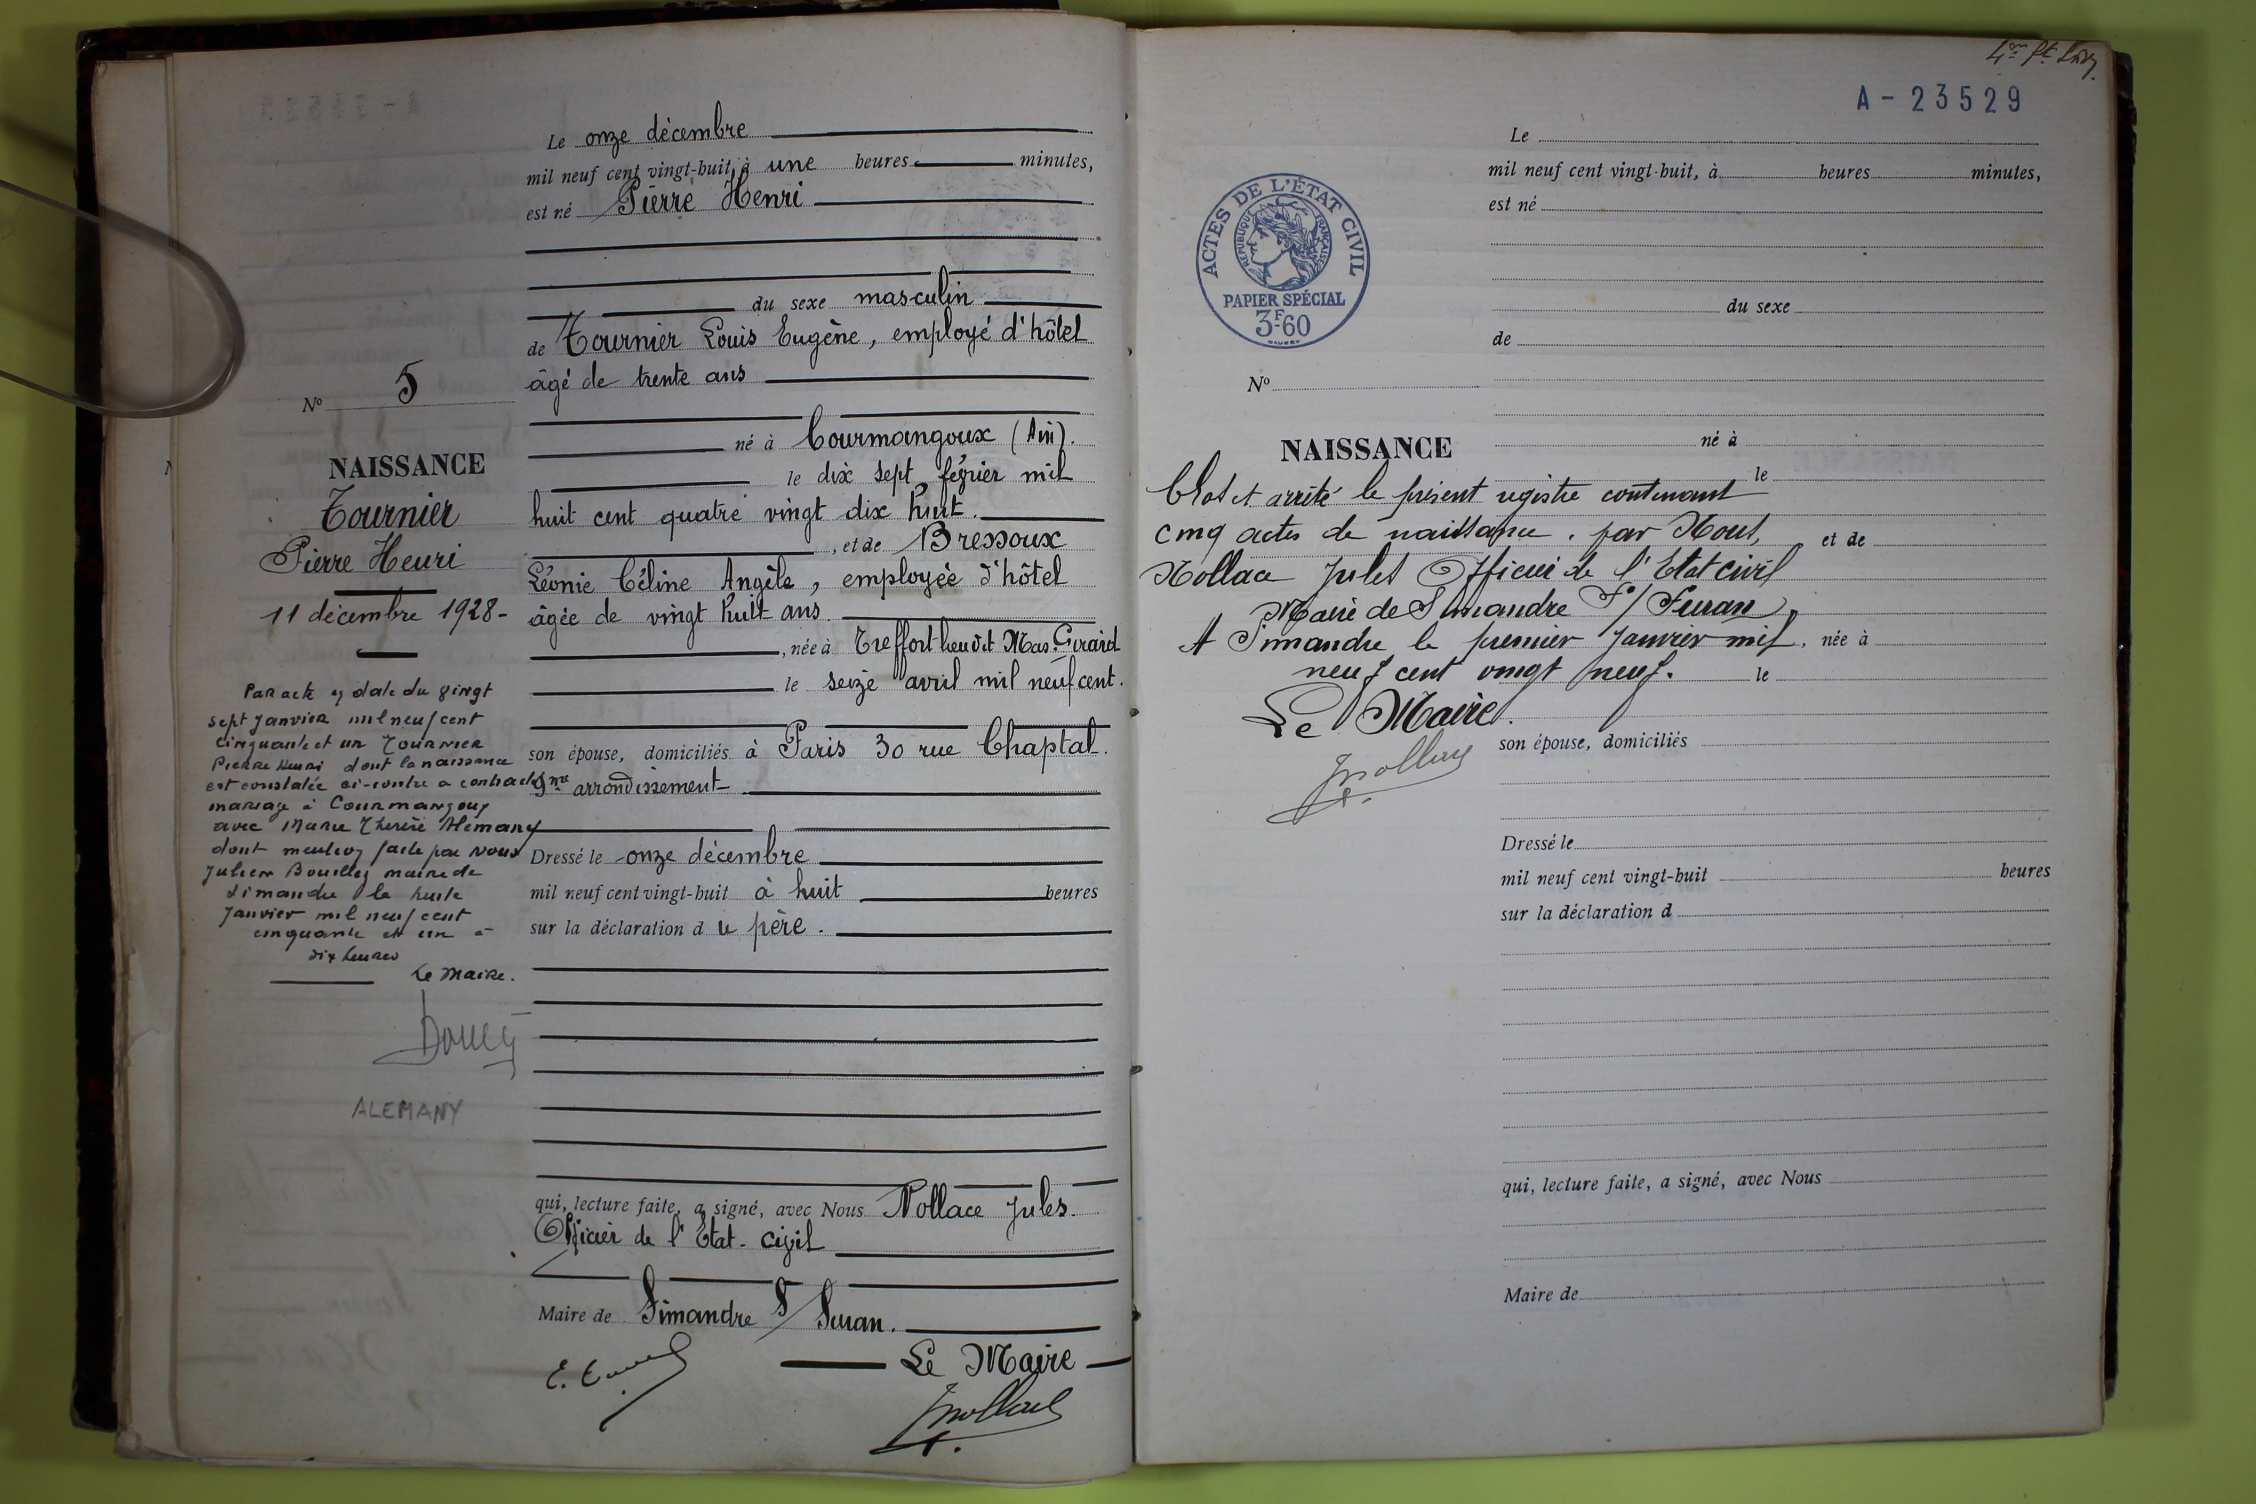 Le onze décembre
mil neuf cent vingt-huit, à une heures minutes,
est né Pierre Henri
du sexe masculin
de Tournier Louis Eugène, employé d'hôtel
âgé de trente ans
né à Courmangoux (Ain).
le dix sept février mil
huit cent quatre vingt dix huit.
, et de Bressoux
Léonie Céline Angèle, employée d'hôtel
âgée de vingt huit ans
, née à Treffort lieu dit Mas Girard
le seize avril mil neuf cent.
son épouse, domiciliés à Paris 30 rue Chaptal.
9me arrondissement
Dressé le onze décembre
mil neuf cent vingt-huit à huit heures
sur la déclaration du père.
qui, lecture faite, a signé, avec Nous Nollace Jules.
Officier de l'Etat-civil
Maire de Simandre S/ Suran.
Le Maire
No 5
NAISSANCE
Tournier
Pierre Henri
11 décembre 1928-
Par acte en date du vingt
sept janvier mil neuf cent
cinquante et un Tournier
Pierre Henri dont la naissance
est constatée ci-contre a contracté
mariage à Courmangoux
avec Marie Thérèse Alemany
dont mention faite par nous
Julien maire de
Simandre le
Janvier mil neuf cent
cinquante et un à
dix heures
Le Maire.
ALEMANY
A-23529
ACTES DE L'ÉTAT CIVIL
RÉPUBLIQUE FRANÇAISE
PAPIER SPÉCIAL
3F60
Le
mil neuf cent vingt-huit, à heures minutes,
est né
du sexe
de
No
NAISSANCE
né à
le
Clos et arrêté le présent registre contenant
cinq actes de naissance. par Nous,
et de
Nollace Jules Officier de l'Etat civil
Maire de Simandre S/ Suran
A Simandre le premier Janvier mil
née à
neuf cent vingt neuf.
le
Le Maire.
son épouse, domiciliés
Dressé le
mil neuf cent vingt-huit heures
sur la déclaration d
qui, lecture faite, a signé, avec Nous
Maire de